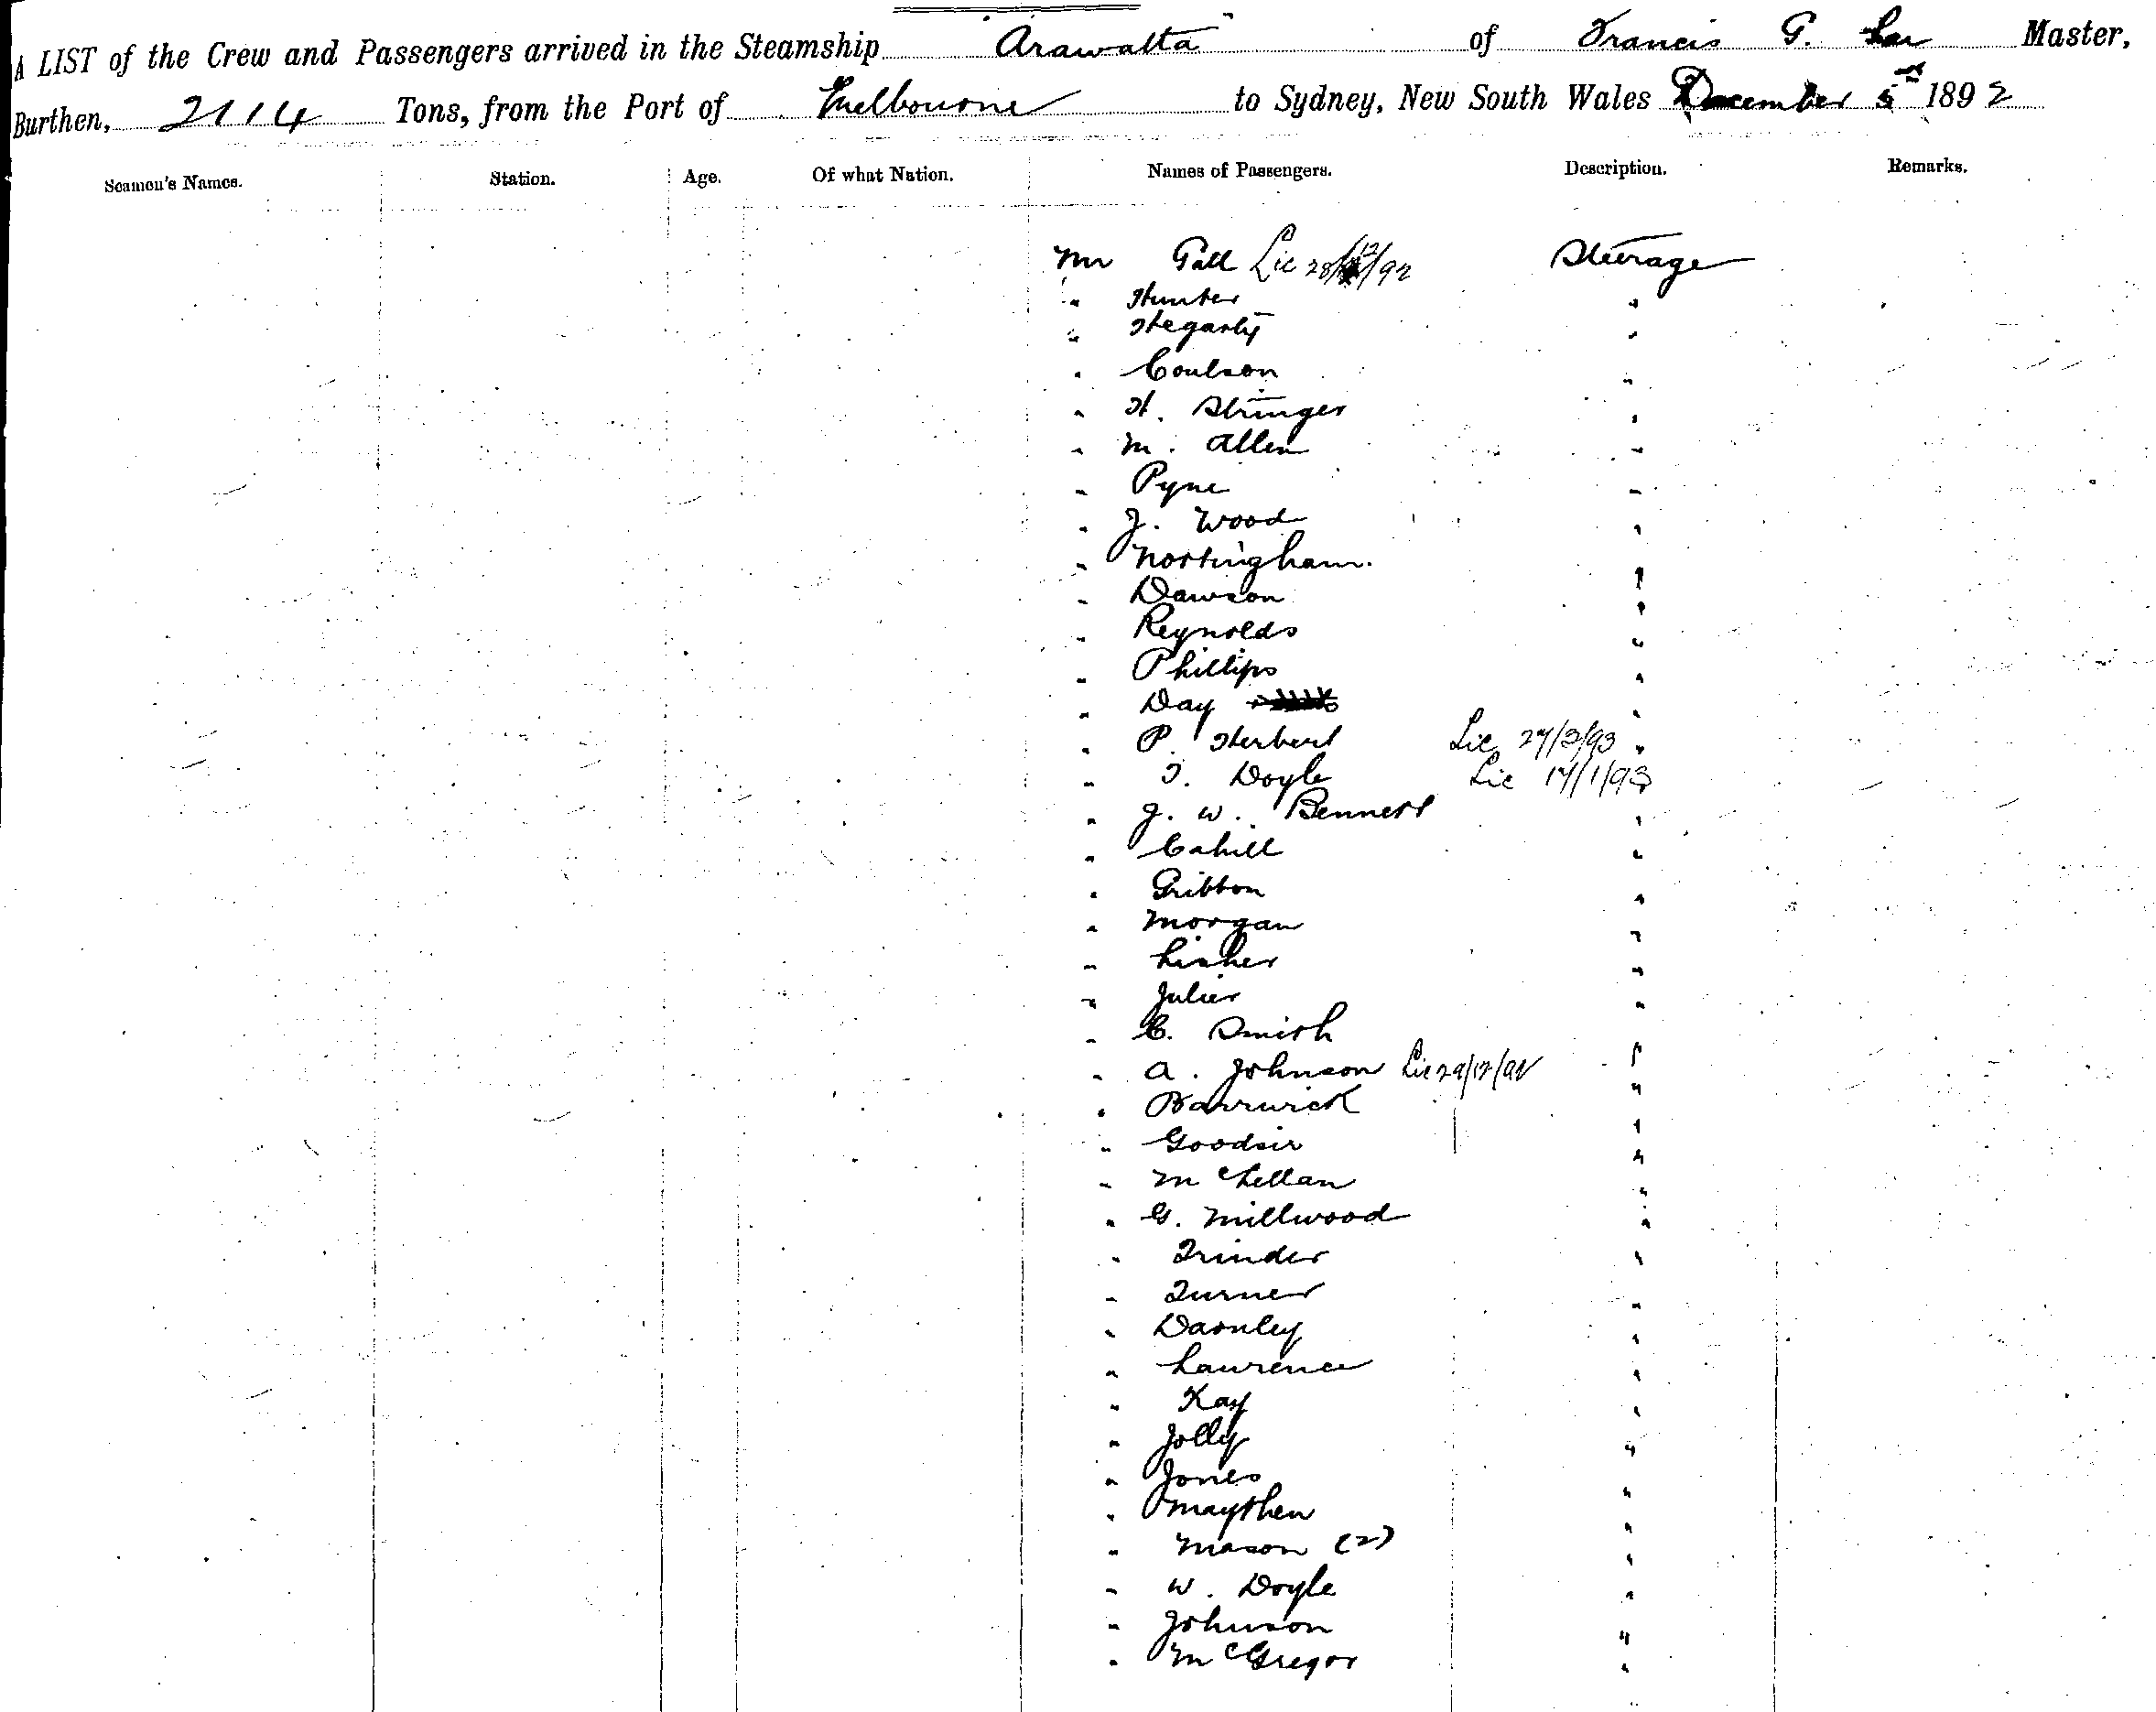 A LIST of the Crew and Passengers arrived in the Steamship "Arawatta" of Francis G. Lee Master,
Burthen, 2114 Tons, from the Port of Melbourne to Sydney, New South Wales December 5th 1892
Seamen's Names. Station. Age. Of what Nation. Names of Passengers. Description. Remarks.
Mr Gall Lic 28/12/92 Steerage
" Hunter "
" Hegarty "
" Coulson "
" H. Stringer "
" M. Allen "
" Pyne "
" J. Wood "
" Nottingham. "
" Dawson "
" Reynolds "
" Phillips "
" Day "
" P. Herbert Lic 27/3/93 "
" T. Doyle Lic 17/1/93 "
" J. W. Bennett "
" Cahill "
" Gribbon "
" Morgan "
" Lisher "
" Julier "
" C. Smith "
" A. Johnson Lic 29/12/92 "
" Barrwick "
" Goodsir "
" McLellan "
" G. Millwood "
" Trinder "
" Turner "
" Darnley "
" Laurence "
" Kay "
" Jolly "
" Jones "
" Maythen "
" Mason (2) "
" W. Doyle "
" Johnson "
" McGregor "